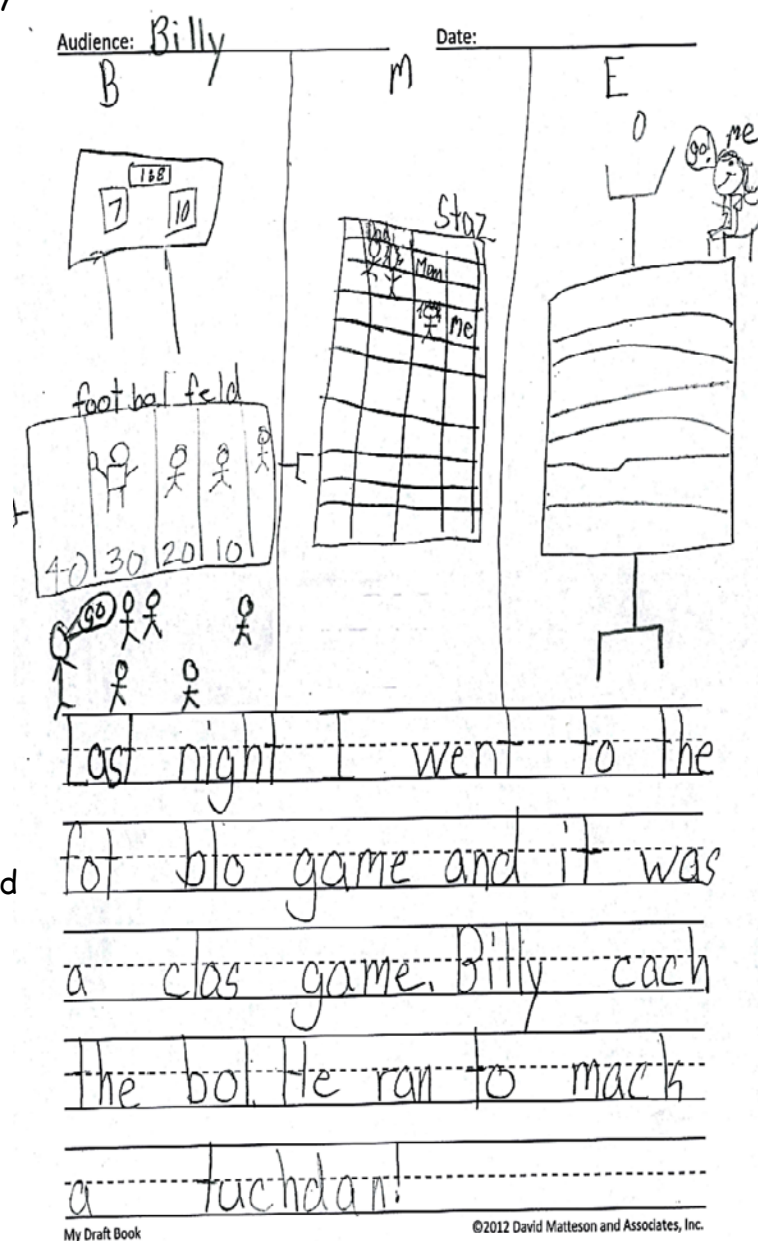 Audience: Billy Date:
B M E
go! me
168
7 10
Staz
Dad Mom
Me
foot bal feld
40 30 20 10
go
Last night I went to the
fot blo game and it was
d
a clas game. Billy cach
the bol. He ran to mack
a tuchdan!
My Draft Book ©2012 David Matteson and Associates, Inc.